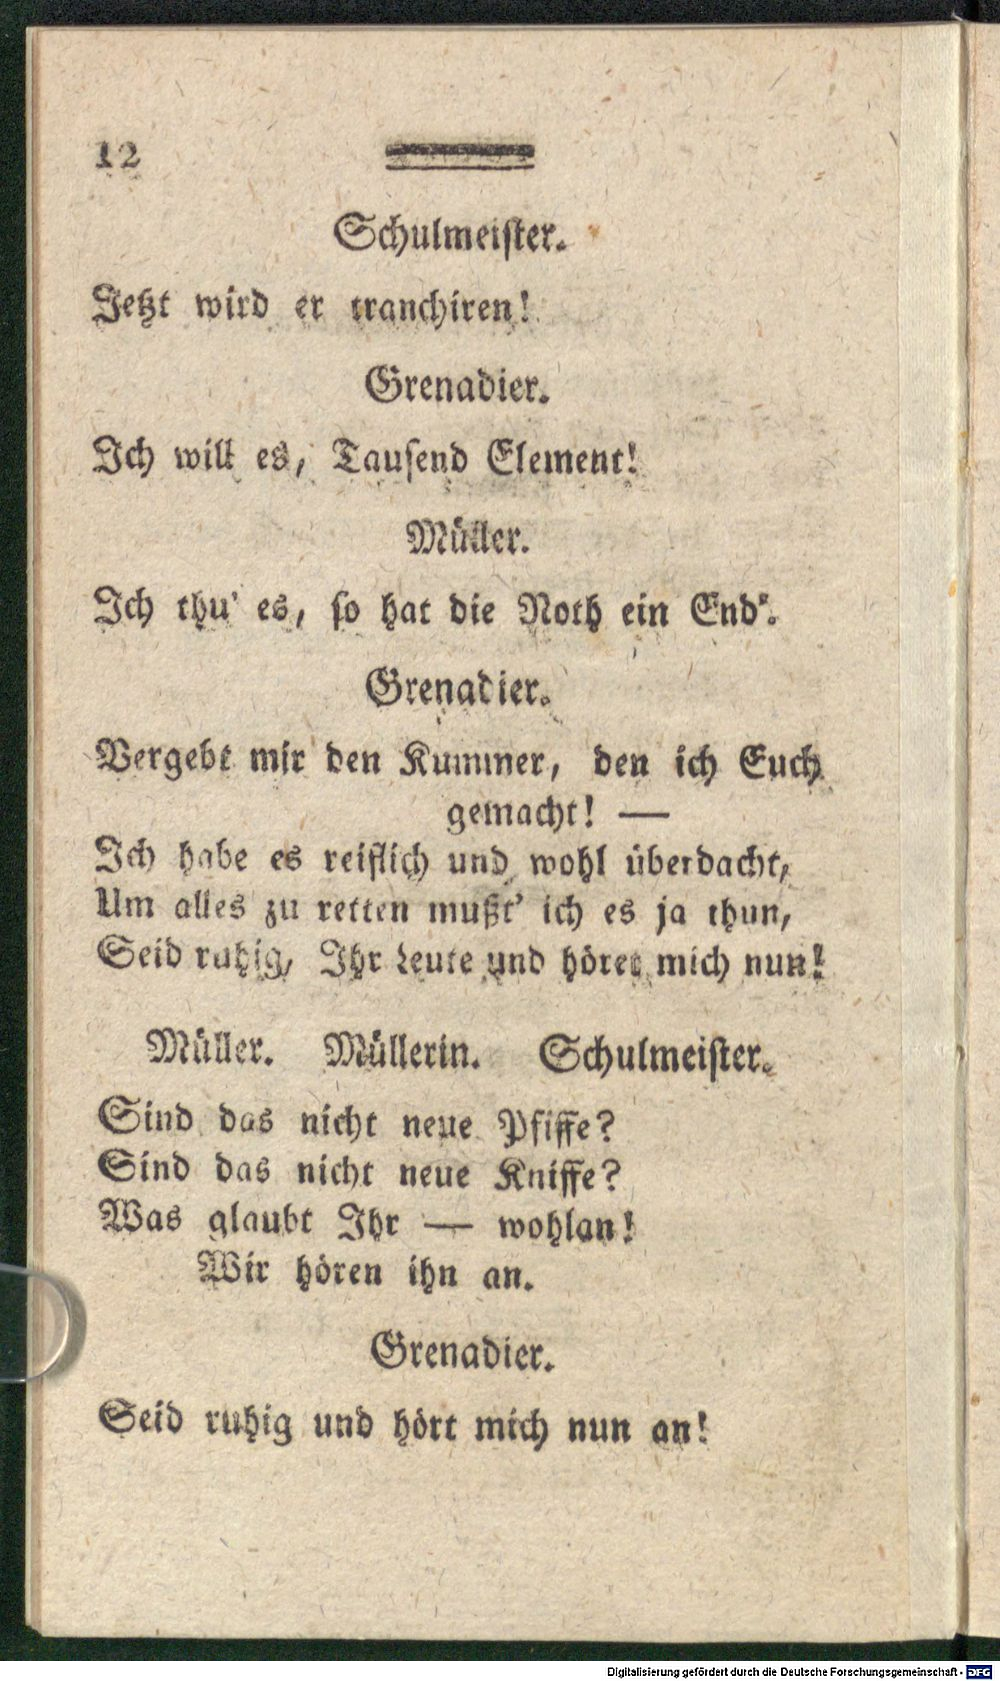 12
Schulmeister.
Jetzt wird er tranchiren!
Grenadier.
Ich will es, Tausend Element!
Müller.
Ich thu' es, so hat die Noth ein End'.
Grenadier.
Vergebt mir den Kummer, den ich Euch
gemacht! —
Ich habe es reiflich und wohl überdacht,
Um alles zu retten mußt' ich es ja thun,
Seid ruhig, Ihr Leute und höret mich nun!
Müller. Müllerin. Schulmeister.
Sind das nicht neue Pfiffe?
Sind das nicht neue Kniffe?
Was glaubt Ihr — wohlan!
Wir hören ihn an.
Grenadier.
Seid ruhig und hört mich nun an!
Digitalisierung gefördert durch die Deutsche Forschungsgemeinschaft - DFG